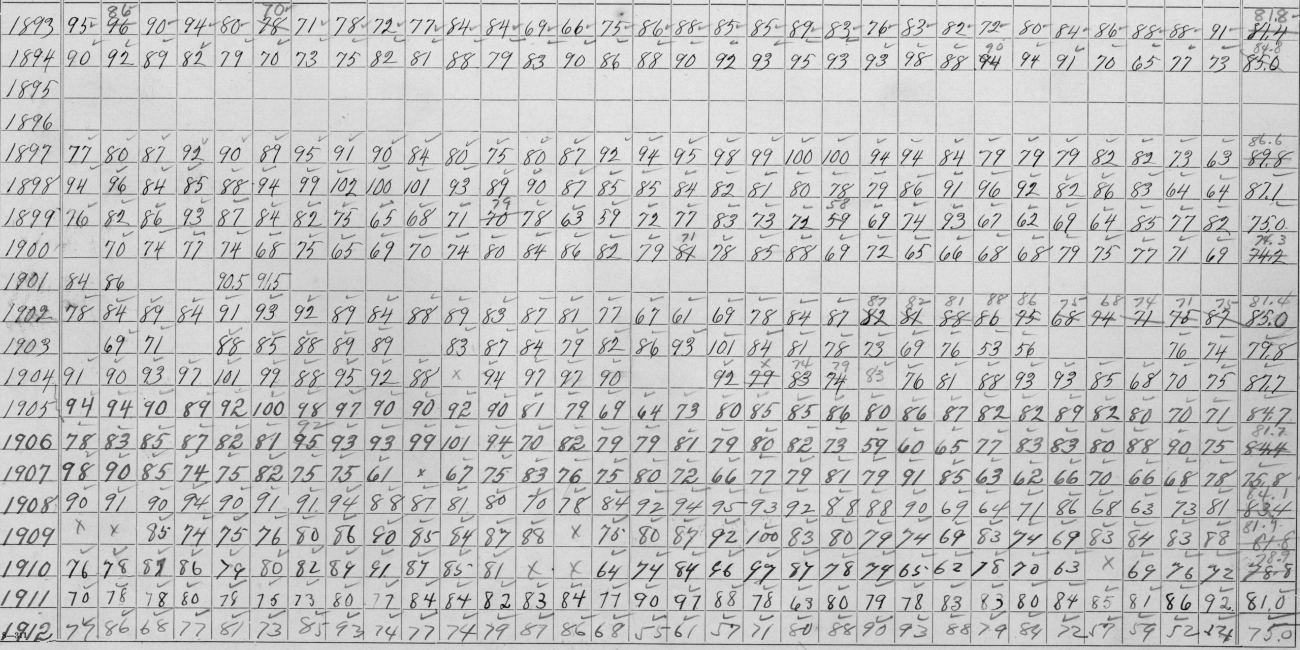 86 70 81.8
1893 95 96 90 94 80 78 71 78 72 77 84 84 69 66 75 86 88 85 85 89 83 76 83 82 72 80 84 86 88 88 91 81.4
90 84.8
1894 90 92 89 82 79 70 73 75 82 81 88 79 83 90 86 88 90 92 93 95 93 93 98 88 94 94 91 70 65 77 73 85.0
1895
1896
86.6
1897 77 80 87 92 90 89 95 91 90 84 80 75 80 87 92 94 95 98 99 100 100 94 94 84 79 79 79 82 82 73 63 89.8
1898 94 96 84 85 88 94 99 102 100 101 93 89 90 87 85 85 84 82 81 80 78 79 86 91 96 92 82 86 83 64 64 87.1
79 58
1899 76 82 86 93 87 84 82 75 65 68 71 70 78 63 59 72 77 83 73 72 59 69 74 93 67 62 69 64 85 77 82 75.0
71 74.3
1900 70 74 77 74 68 75 65 69 70 74 80 84 86 82 79 81 78 85 88 69 72 65 66 68 68 79 75 77 71 69 74.2
1901 84 86 90.5 91.5
87 82 81 88 86 75 68 74 71 75 81.4
1902 78 84 89 84 91 93 92 89 84 88 89 83 87 81 77 67 61 69 78 84 87 82 81 88 86 95 68 94 71 75 87 83.0
1903 69 71 88 85 88 89 89 83 87 84 79 82 86 93 101 84 81 78 73 69 76 53 56 76 74 79.8
x 74 79
1904 91 90 93 97 101 99 88 95 92 88 x 94 97 97 90 92 79 83 74 83 76 81 88 93 93 85 68 70 75 87.7
1905 94 94 90 89 92 100 98 97 90 90 92 90 81 79 69 64 73 80 85 85 86 80 86 87 82 82 89 82 80 70 71 84.7
92 81.7
1906 78 83 85 87 82 81 95 93 93 99 101 94 70 82 79 79 81 79 80 82 73 59 60 65 77 83 83 80 88 90 75 84.4
1907 98 90 85 74 75 82 75 75 61 x 67 75 83 76 75 80 72 66 77 79 81 79 91 85 63 62 66 70 66 68 78 75.8
84.1
1908 90 91 90 94 90 91 91 94 88 87 81 80 70 78 84 92 94 95 93 92 88 88 90 69 64 71 86 68 63 73 81 83.4
81.9
1909 x x 85 74 75 76 80 86 90 85 84 87 88 x 75 80 87 92 100 83 80 79 74 69 83 74 69 83 84 83 88
78.9
1910 76 78 81 86 79 80 82 89 91 87 85 81 x x 64 74 84 96 97 87 78 79 65 62 78 70 63 x 69 76 72 78.8
1911 70 78 78 80 79 75 73 80 77 84 84 82 83 84 77 90 97 88 78 63 80 79 78 83 83 80 84 85 81 86 92 81.0
1912 79 86 68 77 81 73 85 93 74 77 74 79 87 86 68 55 61 57 71 80 88 90 93 88 79 84 72 57 59 52 54 75.0